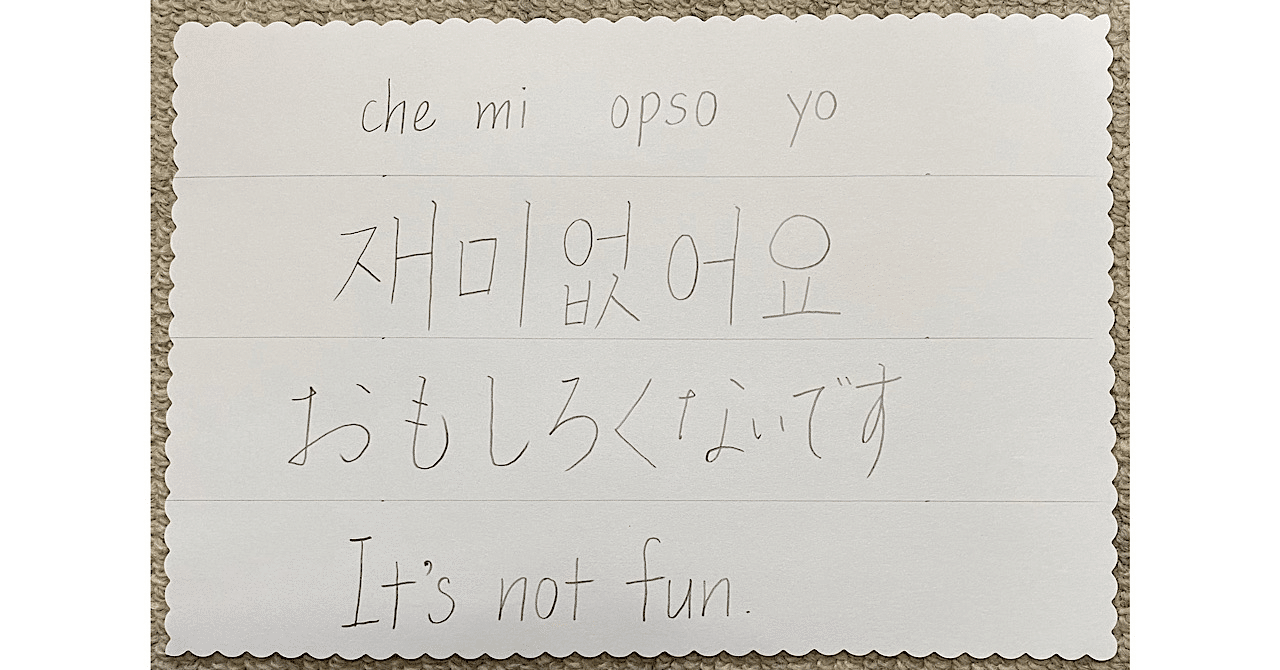 che mi opso yo
재미없어요
おもしろくないです
It's not fun.